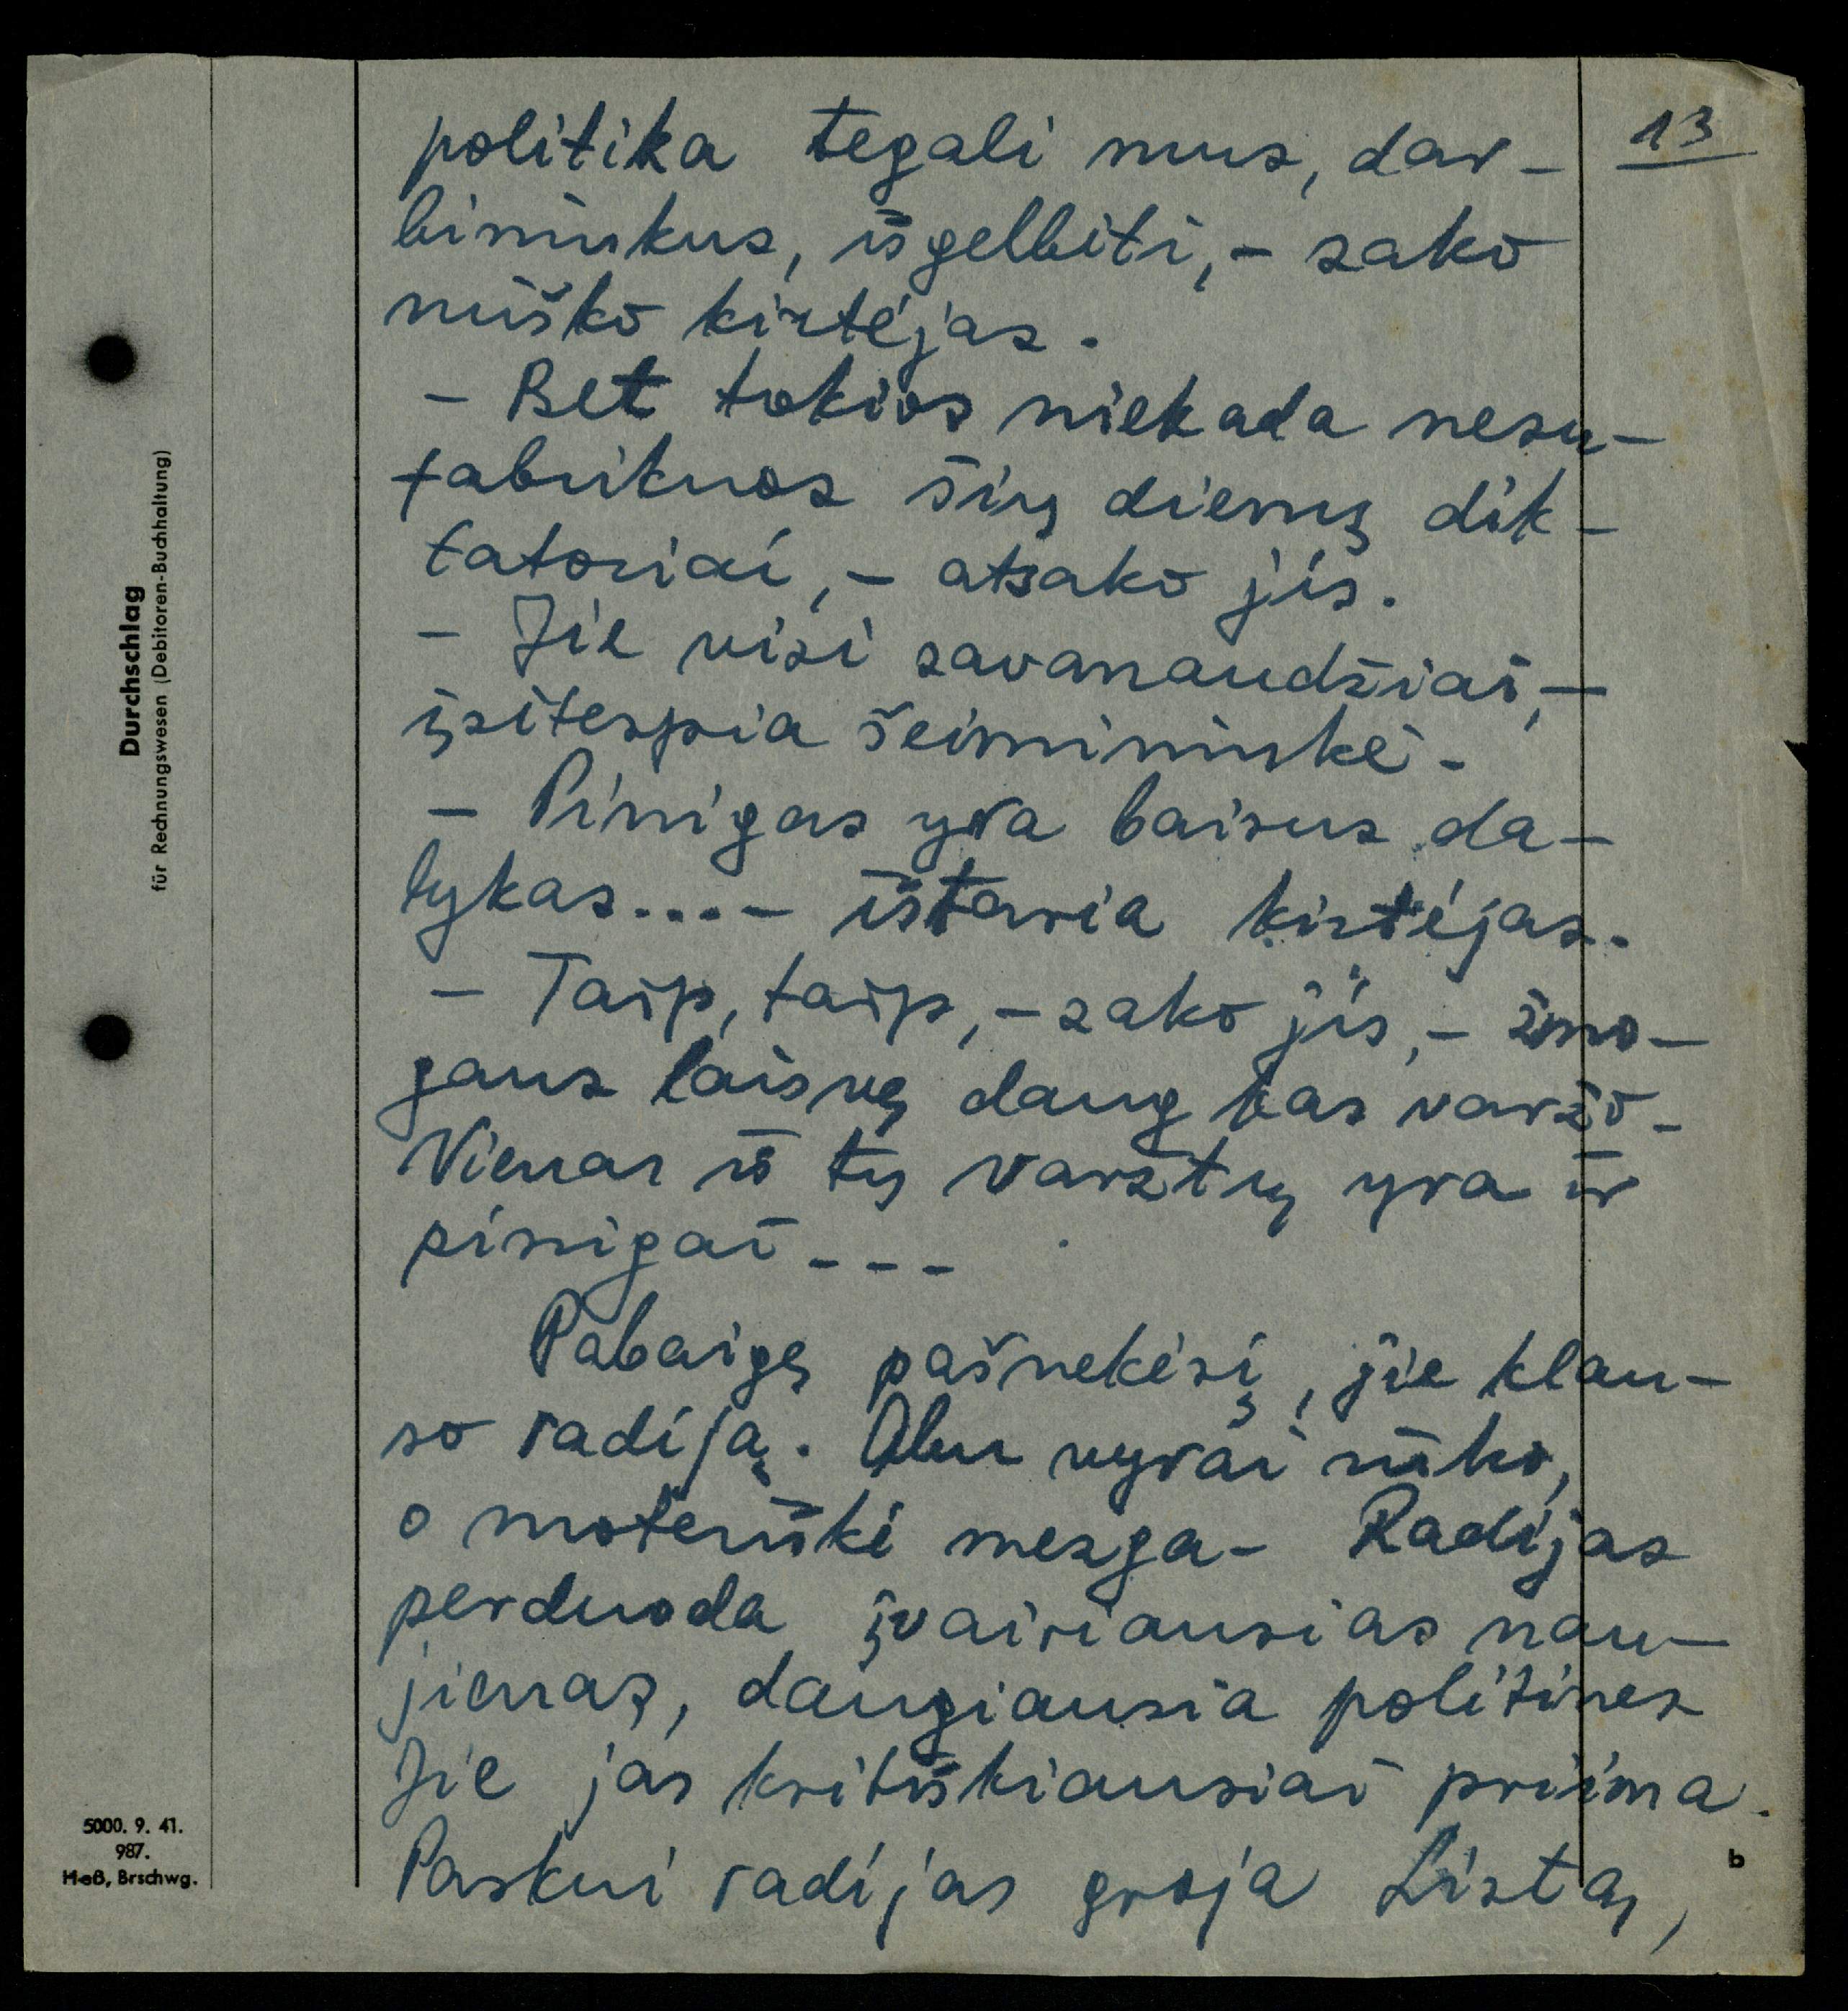 13
politika tegali mus, dar-
bininkus, išgelbėti, - sako
miško kirtėjas.
- Bet tokios niekada nesu-
fabrikuos šių dienų dik-
tatoriai, - atsako jis.
- Jie visi savanaudžiai, -
įsiterpia šeimininkė.
- Pinigas yra baisus da-
lykas.... - ištaria kirtėjas.
- Taip, taip, - sako jis, - žmo-
gaus laisvę daug kas varžo.
Vienas iš tų varžtų yra ir
pinigai...
Pabaigę pašnekėsį, jie klau-
so radiją. Abu vyrai rūko,
o moteriškė mezga. Radijas
perduoda įvairiausias nau-
jienas, daugiausia politines
Jie jas kritiškiausiai priima.
Paskui radijas groja Listą,
Durchschlag
für Rechnungswesen (Debitoren-Buchhaltung)
5000. 9. 41.
987.
Heß, Brschwg.
b